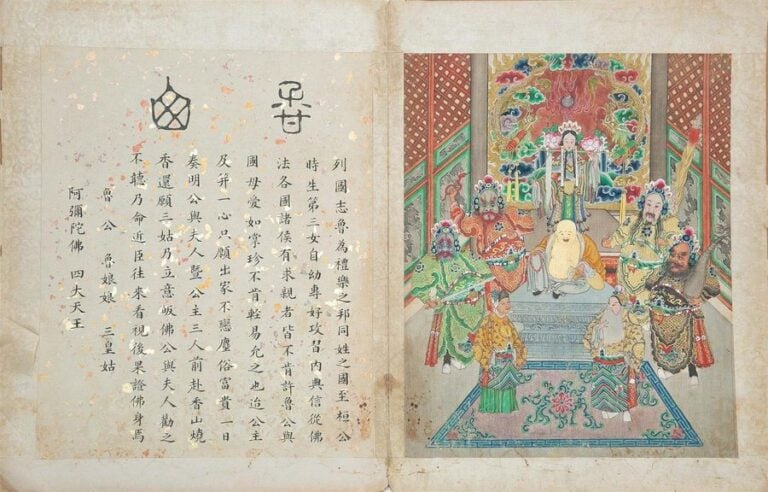 香
列國志魯為禮樂之邦同姓之國至桓公
時生第三女自幼專好攻習內典信從佛
法各國諸侯有求親者皆不肯許魯公與
國母愛如掌珍不肯輕易允之也迨公主
及笄一心只願出家不戀塵俗富貴一日
奏明公與夫人暨公主三人前赴香山燒
香還願三姑乃立意皈佛公與夫人勸之
不聽乃命近臣往來看視後果證佛身焉
魯公 魯娘娘 三皇姑
阿彌陀佛 四大天王